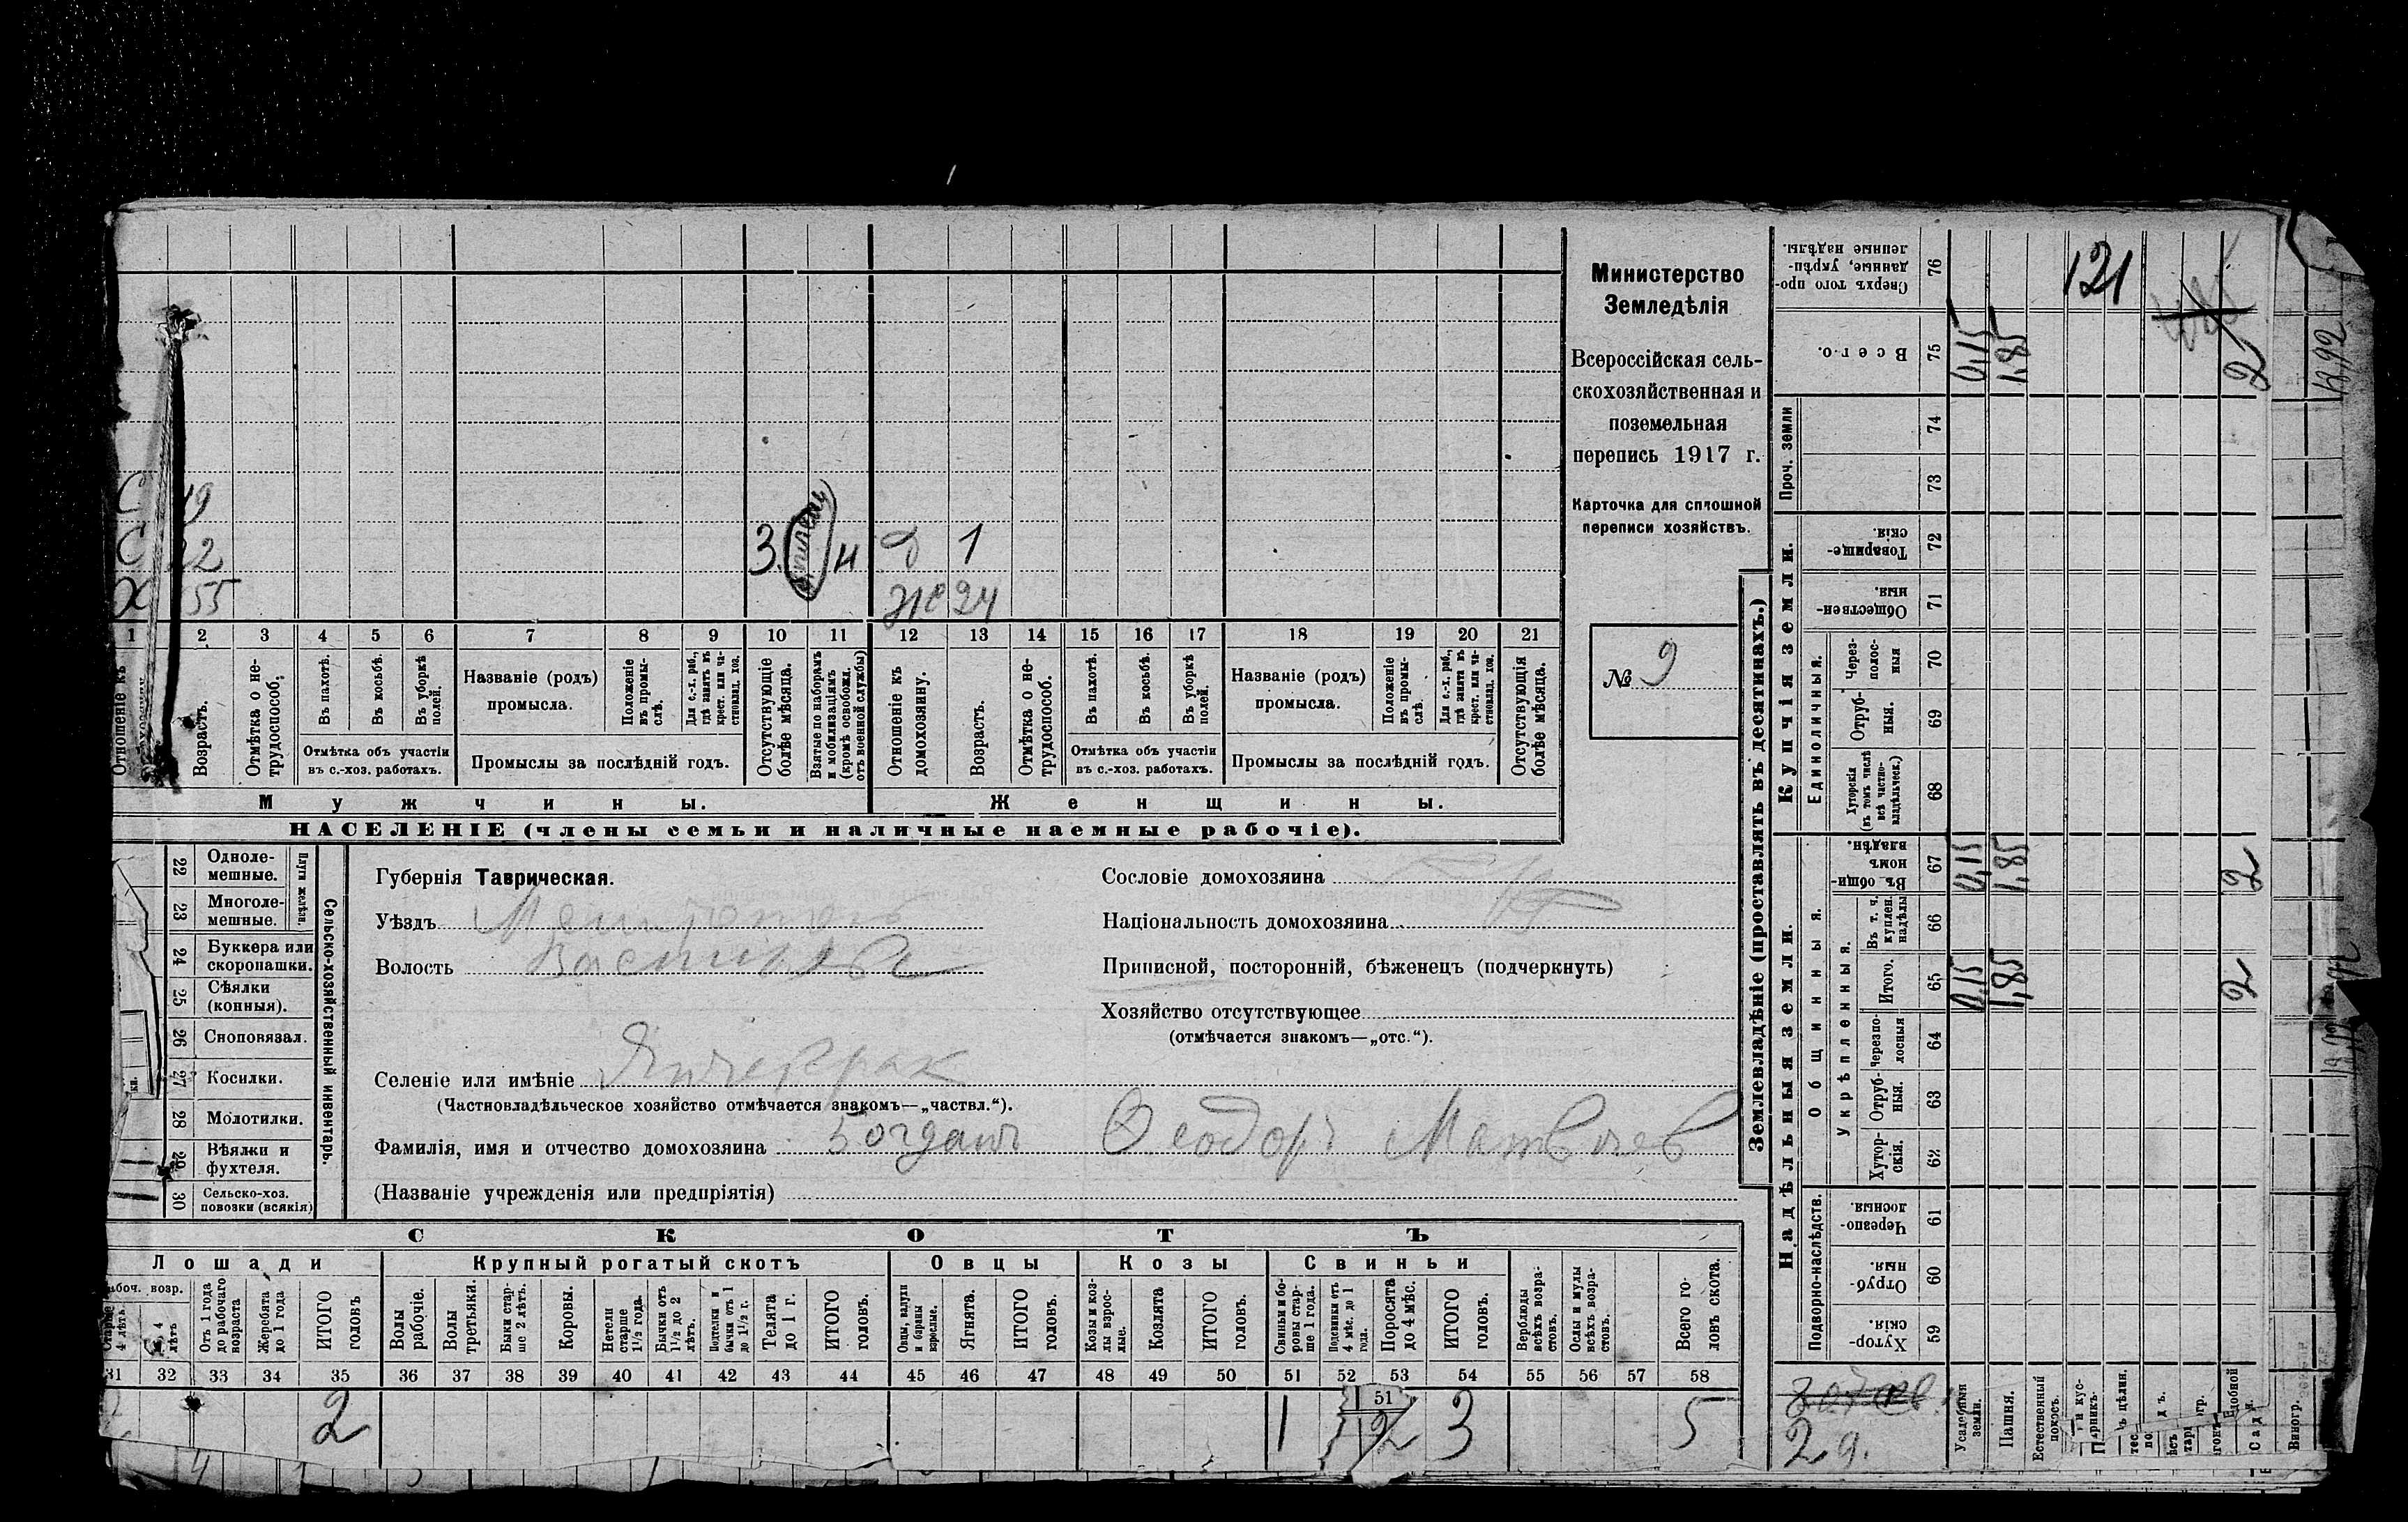 Министерство
Земледѣлія
Всероссійская сель-
скохозяйственная и
поземельная
перепись 1917 г.
Карточка для сплошной
переписи хозяйствъ.
№ 9
49
22
3. н д 1
Х 55 же 24
1 2 3 4 5 6 7 8 9 10 11 12 13 14 15 16 17 18 19 20 21
Отношеніе къ
Возрастъ.
Отмѣтка о не-
трудоспособ.
Въ пахотѣ.
Въ косьбѣ.
Въ уборкѣ
полей.
Отмѣтка объ участіи
въ с.-хоз. работахъ.
Названіе (родъ)
промысла.
Положеніе
въ промы-
слѣ.
Для с.-х. раб.,
гдѣ занятъ въ
крест. или ча-
стновлад. хоз.
Промыслы за послѣдній годъ.
Отсутствующіе
болѣе мѣсяца.
Взятые по наборамъ
и мобилизаціямъ
(кромѣ освобожд.
отъ военной службы)
Отношеніе къ
домохозяину.
Возрастъ.
Отмѣтка о не-
трудоспособ.
Въ пахотѣ.
Въ косьбѣ.
Въ уборкѣ
полей.
Отмѣтка объ участіи
въ с.-хоз. работахъ.
Названіе (родъ)
промысла.
Положеніе
въ промы-
слѣ.
Для с.-х. раб.,
гдѣ занята въ
крест. или ча-
стновлад. хоз.
Промыслы за послѣдній годъ.
Отсутствующія
болѣе мѣсяца.
Мужчины.
Женщины.
НАСЕЛЕНІЕ (члены семьи и наличные наемные рабочіе).
22 Одноле-
мешные.
23 Многоле-
мешные.
Плуги желѣзн.
24 Буккера или
скоропашки.
25 Сѣялки
(конныя).
26 Сноповязал.
27 Косилки.
28 Молотилки.
29 Вѣялки и
фухтеля.
30 Сельско-хоз.
повозки (всякія)
Сельско-хозяйственный инвентарь.
Губернія Таврическая.
Уѣздъ Мелитополь
Волость Васильев
Селеніе или имѣніе Янчекрак
(Частновладѣльческое хозяйство отмѣчается знакомъ—„частвл.“).
Фамилія, имя и отчество домохозяина Богданъ Ѳеодоръ Матвѣев
(Названіе учрежденія или предпріятія)
Сословіе домохозяина
Національность домохозяина
Приписной, посторонній, бѣженецъ (подчеркнуть)
Хозяйство отсутствующее
(отмѣчается знакомъ—„отс.“).
СКОТЪ
Лошади
Крупный рогатый скотъ
Овцы
Козы
Свиньи
рабоч. возр.
Старше
4 лѣтъ.
4
лѣтъ
Отъ 1 года
до рабочаго
возраста
Жеребята
до 1 года
ИТОГО
головъ
Волы
рабочіе.
Волы
третьяки.
Быки стар-
ше 2 лѣтъ.
Коровы.
Нетели
старше
1½ года.
Бычки отъ
1½ до 2
лѣтъ.
Подтелки и
бычки отъ 1
до 1½ г.
Телята
до 1 г.
ИТОГО
головъ.
Овцы, валухи
и бараны
взрослые.
Ягнята.
ИТОГО
головъ.
Козы и коз-
лы взрос-
лые.
Козлята
ИТОГО
головъ.
Свиньи и бо-
ровы стар-
ше 1 года.
Подсвинки отъ
4 мѣс. до 1
года.
Поросята
до 4 мѣс.
ИТОГО
головъ.
Верблюды
всѣхъ возра-
стовъ.
Ослы и мулы
всѣхъ возра-
стовъ.
Всего го-
ловъ скота.
31 32 33 34 35 36 37 38 39 40 41 42 43 44 45 46 47 48 49 50 51 52 53 54 55 56 57 58
2 1 51 2 3 5
Землевладѣніе (проставлять въ десятинахъ.)
Надѣльныя земли.
Купчія земли.
Проч. земли
Подворно-наслѣдств.
Общинныя.
Укрѣпленныя.
Единоличныя.
Хутор-
скія. 59
Отруб-
ныя. 60
Черезпо-
лосныя. 61
Хутор-
скія. 62
Отруб-
ныя. 63
Черезпо-
лосныя 64
Итого. 65
Въ т. ч.
куплен.
надѣлы 66
Въ общи-
номъ
владѣн. 67
Хуторскія
(въ томъ числѣ
всѣ частно-
владѣльческ.) 68
Отруб-
ныя. 69
Через-
полос-
ныя 70
Обществен-
ныя. 71
Товарище-
скія 72
73
74
Всего. 75
Сверхъ того про-
данные, укрѣп-
ленные надѣлы. 76
Усадебныя
земли. 0,15 0,15 0,15
Пашня. 1,85 1,85 1,85
Естественный
покосъ.
Садъ.
Виногр.
2 2 2
121
2 д.